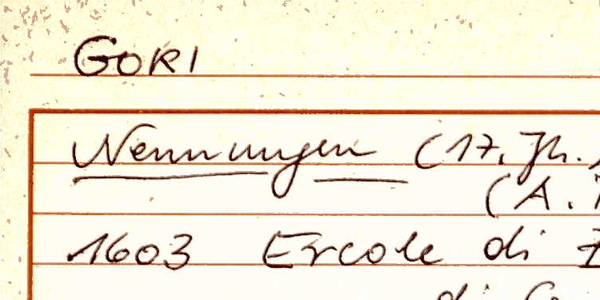 GORI
Nennungen (17. Jh.
(A.
1603 Ercole di
di